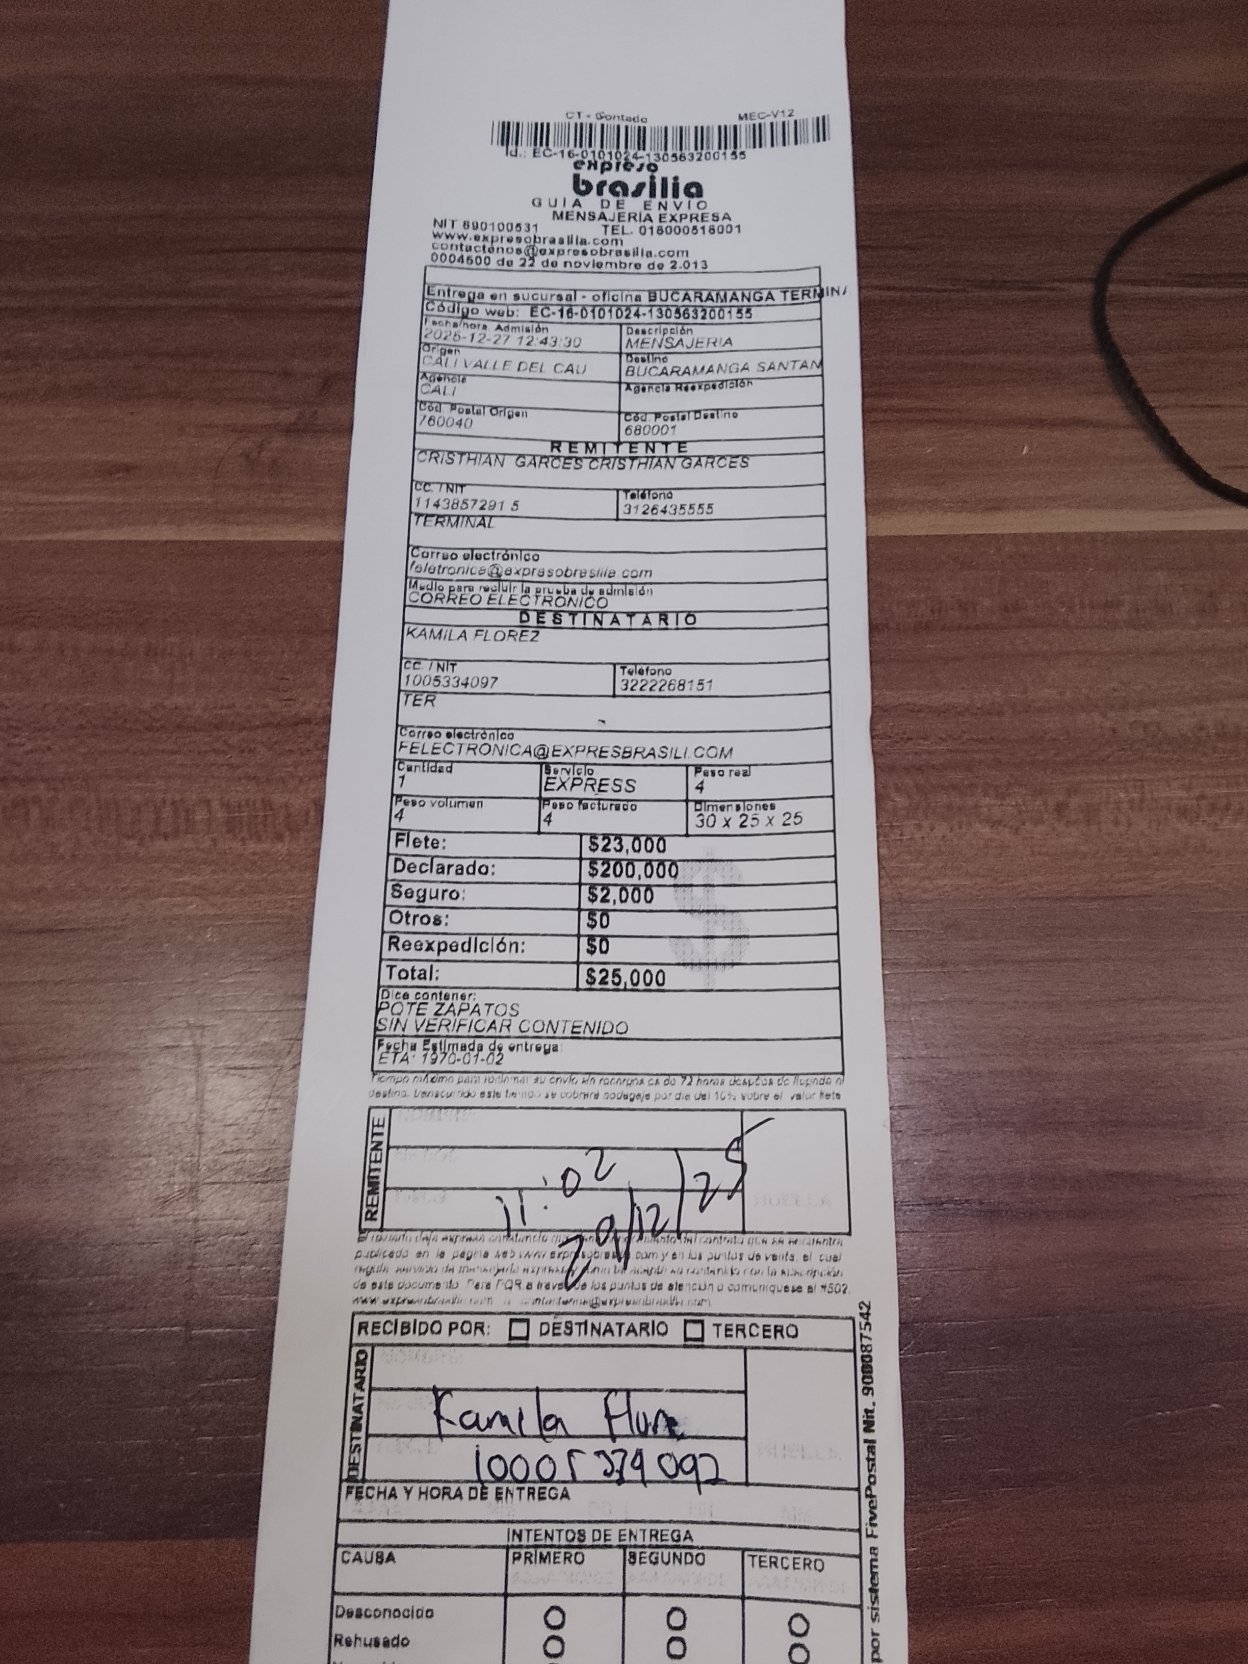 CT - Contado MEC-V12
Id.: EC-16-0101024-130563200155
expreso
brasilia
GUIA DE ENVIO
MENSAJERIA EXPRESA
NIT 890100531 TEL. 018000518001
www.expresobrasilia.com
contactenos@expresobrasilia.com
0004600 de 22 de noviembre de 2.013
Entrega en sucursal - oficina BUCARAMANGA TERMINA
Código web: EC-16-0101024-130563200155
Fecha/hora Admisión Descripción
2025-12-27 12:43:30 MENSAJERIA
Origen Destino
CALI VALLE DEL CAU BUCARAMANGA SANTAN
Agencia Agencia Reexpedición
CALI
Cód. Postal Origen Cód. Postal Destino
760040 680001
REMITENTE
CRISTHIAN GARCES CRISTHIAN GARCES
CC. / NIT Teléfono
1143857291 5 3126435555
TERMINAL
Correo electrónico
feletronica@expresobrasilia.com
Medio para recibir la prueba de admisión
CORREO ELECTRONICO
DESTINATARIO
KAMILA FLOREZ
CC. / NIT Teléfono
1005334097 3222268151
TER
Correo electrónico
FELECTRONICA@EXPRESBRASILI.COM
Cantidad Servicio Peso real
1 EXPRESS 4
Peso volumen Peso facturado Dimensiones
4 4 30 x 25 x 25
Flete: $23,000
Declarado: $200,000
Seguro: $2,000
Otros: $0
Reexpedición: $0
Total: $25,000
Dice contener:
POTE ZAPATOS
SIN VERIFICAR CONTENIDO
Fecha Estimada de entrega:
ETA: 1970-01-02
Tiempo máximo para reclamar su envío sin recargos es de 72 horas después de llegado al
destino, transcurrido este tiempo se cobrará bodegaje por día del 10% sobre el valor flete
REMITENTE
11:02
29/12/25
publicado en la página web www.expresobrasilia.com y en los puntos de venta, el cual
de este documento. Para PQR a través de los puntos de atención o comuníquese al #502.
RECIBIDO POR: DESTINATARIO TERCERO
DESTINATARIO
Kamila
FECHA Y HORA DE ENTREGA
INTENTOS DE ENTREGA
CAUSA PRIMERO SEGUNDO TERCERO
Desconocido
Rehusado
por sistema FivePostal Nit. 900087542